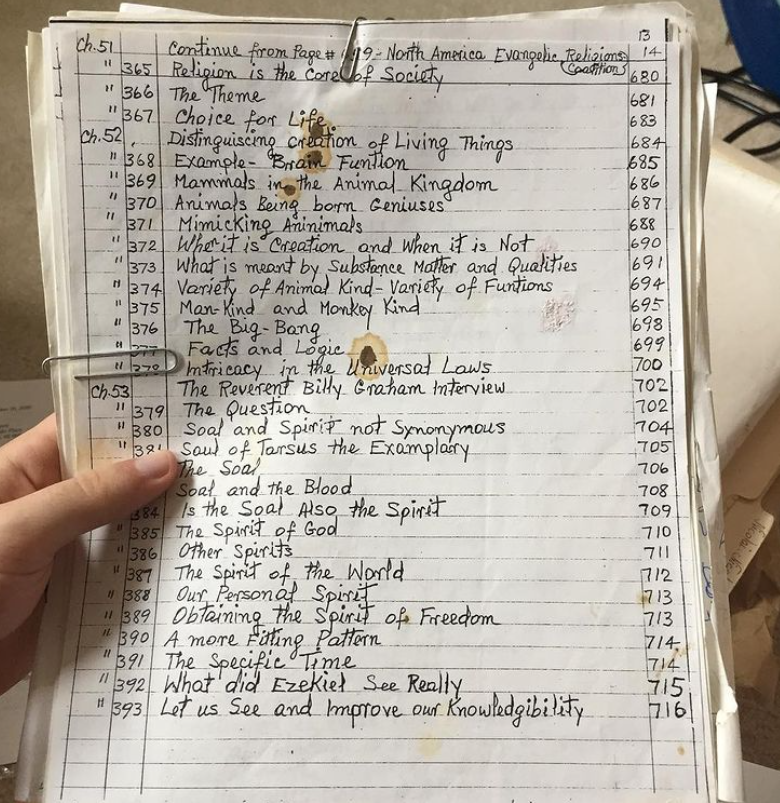 13
Ch.51 Continue from Page# 9- North America Evangelic Religions 14
(Coalition)
" 365 Religion is the Core of Society 680
" 366 The Theme 681
" 367 Choice for Life 683
Ch.52 . Distinguiscing creation of Living Things 684
" 368 Example- Brain Funtion 685
" 369 Mammals in the Animal Kingdom 686
" 370 Animals Being born Geniuses 687
" 371 Mimicking Aninimals 688
" 372 When it is Creation and When it is Not 690
" 373 What is meant by Substance Matter and Qualities 691
" 374 Variety of Animal Kind- Variety of Funtions 694
" 375 Man-Kind and Monkey Kind 695
" 376 The Big-Bang 698
" 377 Facts and Logic 699
" 378 Intricacy in the Universal Laws 700
Ch.53 The Reverent Billy Graham Interview 702
" 379 The Question 702
" 380 Soal and Spirit not Synonymous 704
" 381 Saul of Tarsus the Examplary 705
The Soal 706
Soal and the Blood 708
384 Is the Soal Also the Spirit 709
" 385 The Spirit of God 710
" 386 Other Spirits 711
" 387 The Spirit of the World 712
" 388 Our Personal Spirit 713
" 389 Obtaining the Spirit of Freedom 713
" 390 A more Fitting Pattern 714
" 391 The Specific Time 714
" 392 What did Ezekiel See Really 715
" 393 Let us See and Improve our Knowledgibility 716